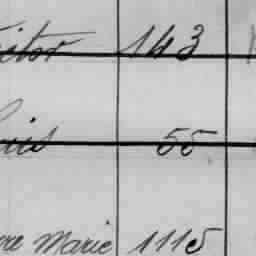 ictor 143
ouis 55
rre Marie 1115